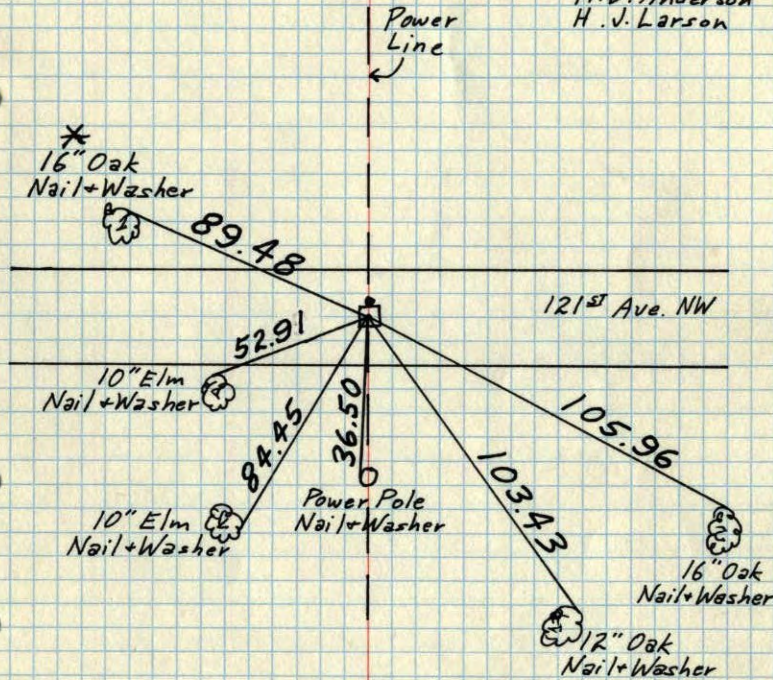 H. J. Larson
Power
Line
16" Oak
Nail + Washer
1
89.48
121ST Ave. NW
52.91
10" Elm
Nail + Washer
84.45
36.50
105.96
103.43
Power Pole
Nail + Washer
10" Elm
Nail + Washer
16" Oak
Nail + Washer
12" Oak
Nail + Washer